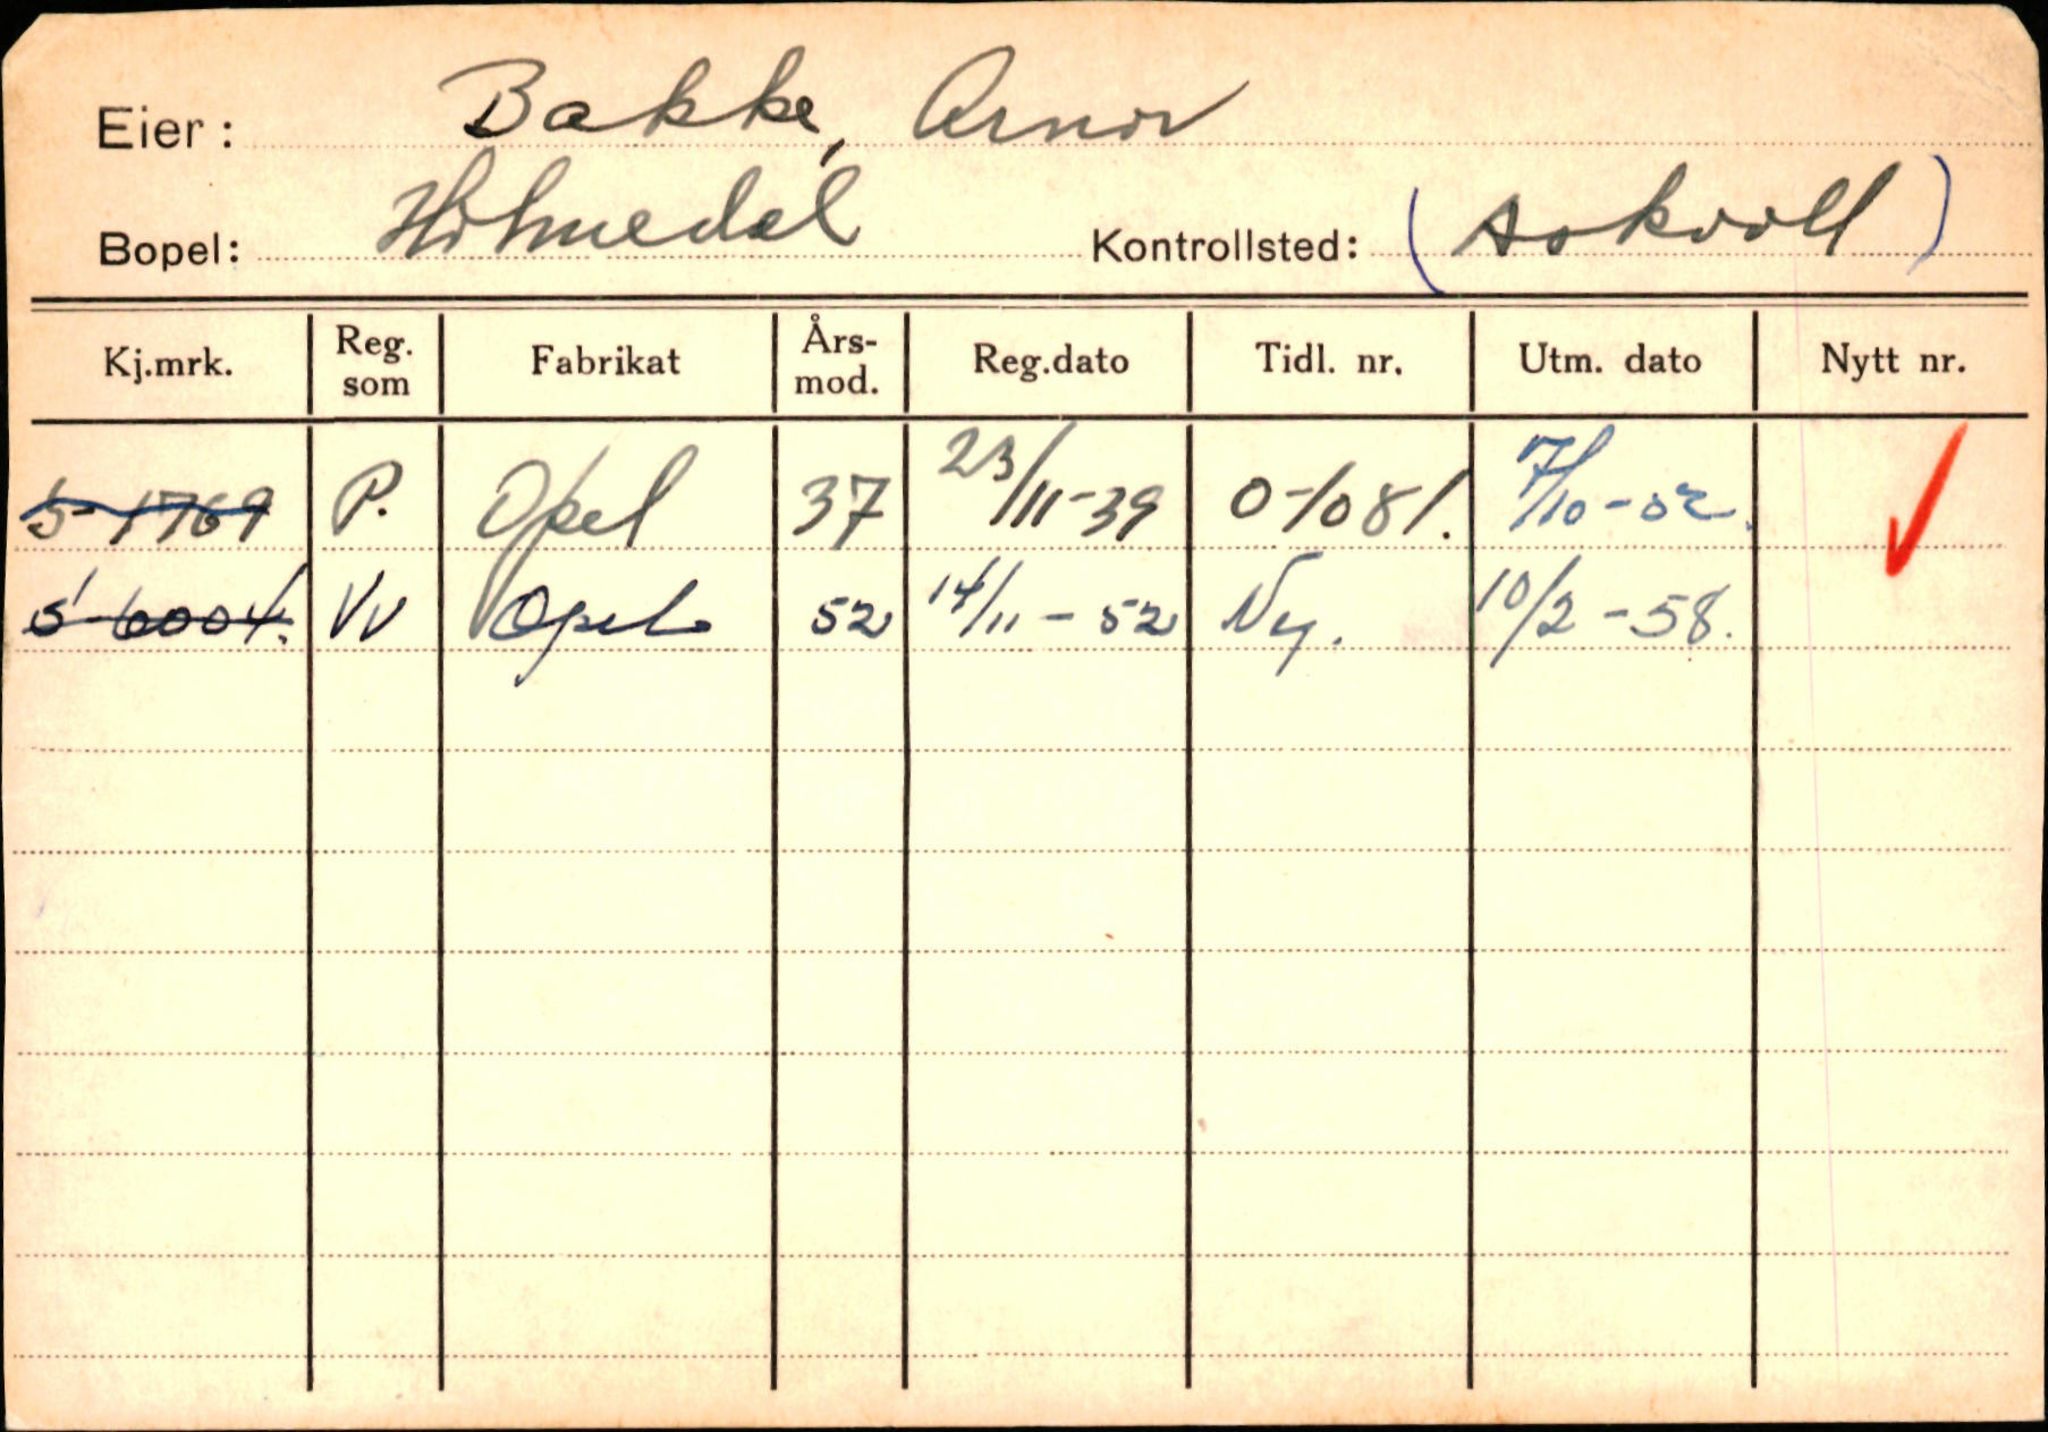 Eier: Bakke, Arnov
Bopel: Holmedal Kontrollsted: (Askvoll)
Kj.mrk. Reg. som Fabrikat Års-mod. Reg.dato Tidl. nr. Utm. dato Nytt nr.
S-1769 P. Opel 37 23/11-39 O-1081. 7/10-52.
S-6004. Vv Opel 52 14/11-52 Ny. 10/2-58.